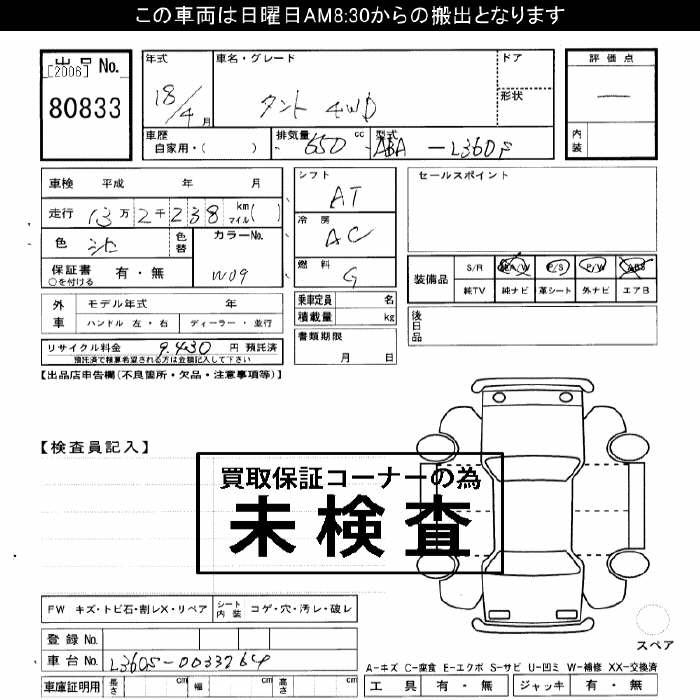 この車両は日曜日AM8:30からの搬出となります
出品 No.
[2006]
80833
年式
18/4月
車名・グレード
タント 4WD
ドア
形状
評価点
—
内装
車歴
自家用・( )
排気量
650 cc
型式
ABA-L360S
車検 平成 年 月
走行 13万2千238 km マイル( )
色
シロ
色替
カラーNo.
W09
保証書 有・無
○を付ける
シフト
AT
冷房
AC
燃料
G
セールスポイント
装備品
S/R
純A/W
P/S
P/W
ABS
純TV
純ナビ
革シート
外ナビ
エアB
外車
モデル年式 年
ハンドル 左・右
ディーラー・並行
乗車定員 名
積載量 kg
後日品
リサイクル料金 9,430 円 預託済
預託済で積算希望される方は金額記入して下さい
書類期限
月 日
【出品店申告欄(不良箇所・欠品・注意事項等)】
【検査員記入】
買取保証コーナーの為
未検査
FW キズ・トビ石・割レX・リペア
シート内装
コゲ・穴・汚レ・破レ
登録No.
車台No.
L360S-0033764
車庫証明用
長さ cm
幅 cm
高さ cm
スペア
A-キズ C-腐食 E-エクボ S-サビ U-凹ミ W-補修 XX-交換済
工具 有・無
ジャッキ 有・無